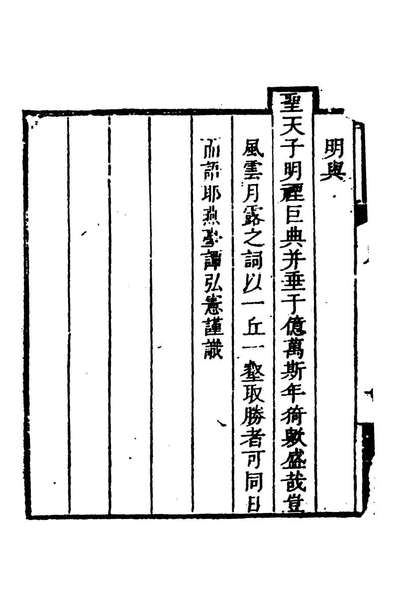 明與
聖天子明禋巨典并垂于億萬斯年猗歟盛哉豈
風雲月露之詞以一丘一壑取勝者可同日
而語耶燕臺譚弘憲謹識